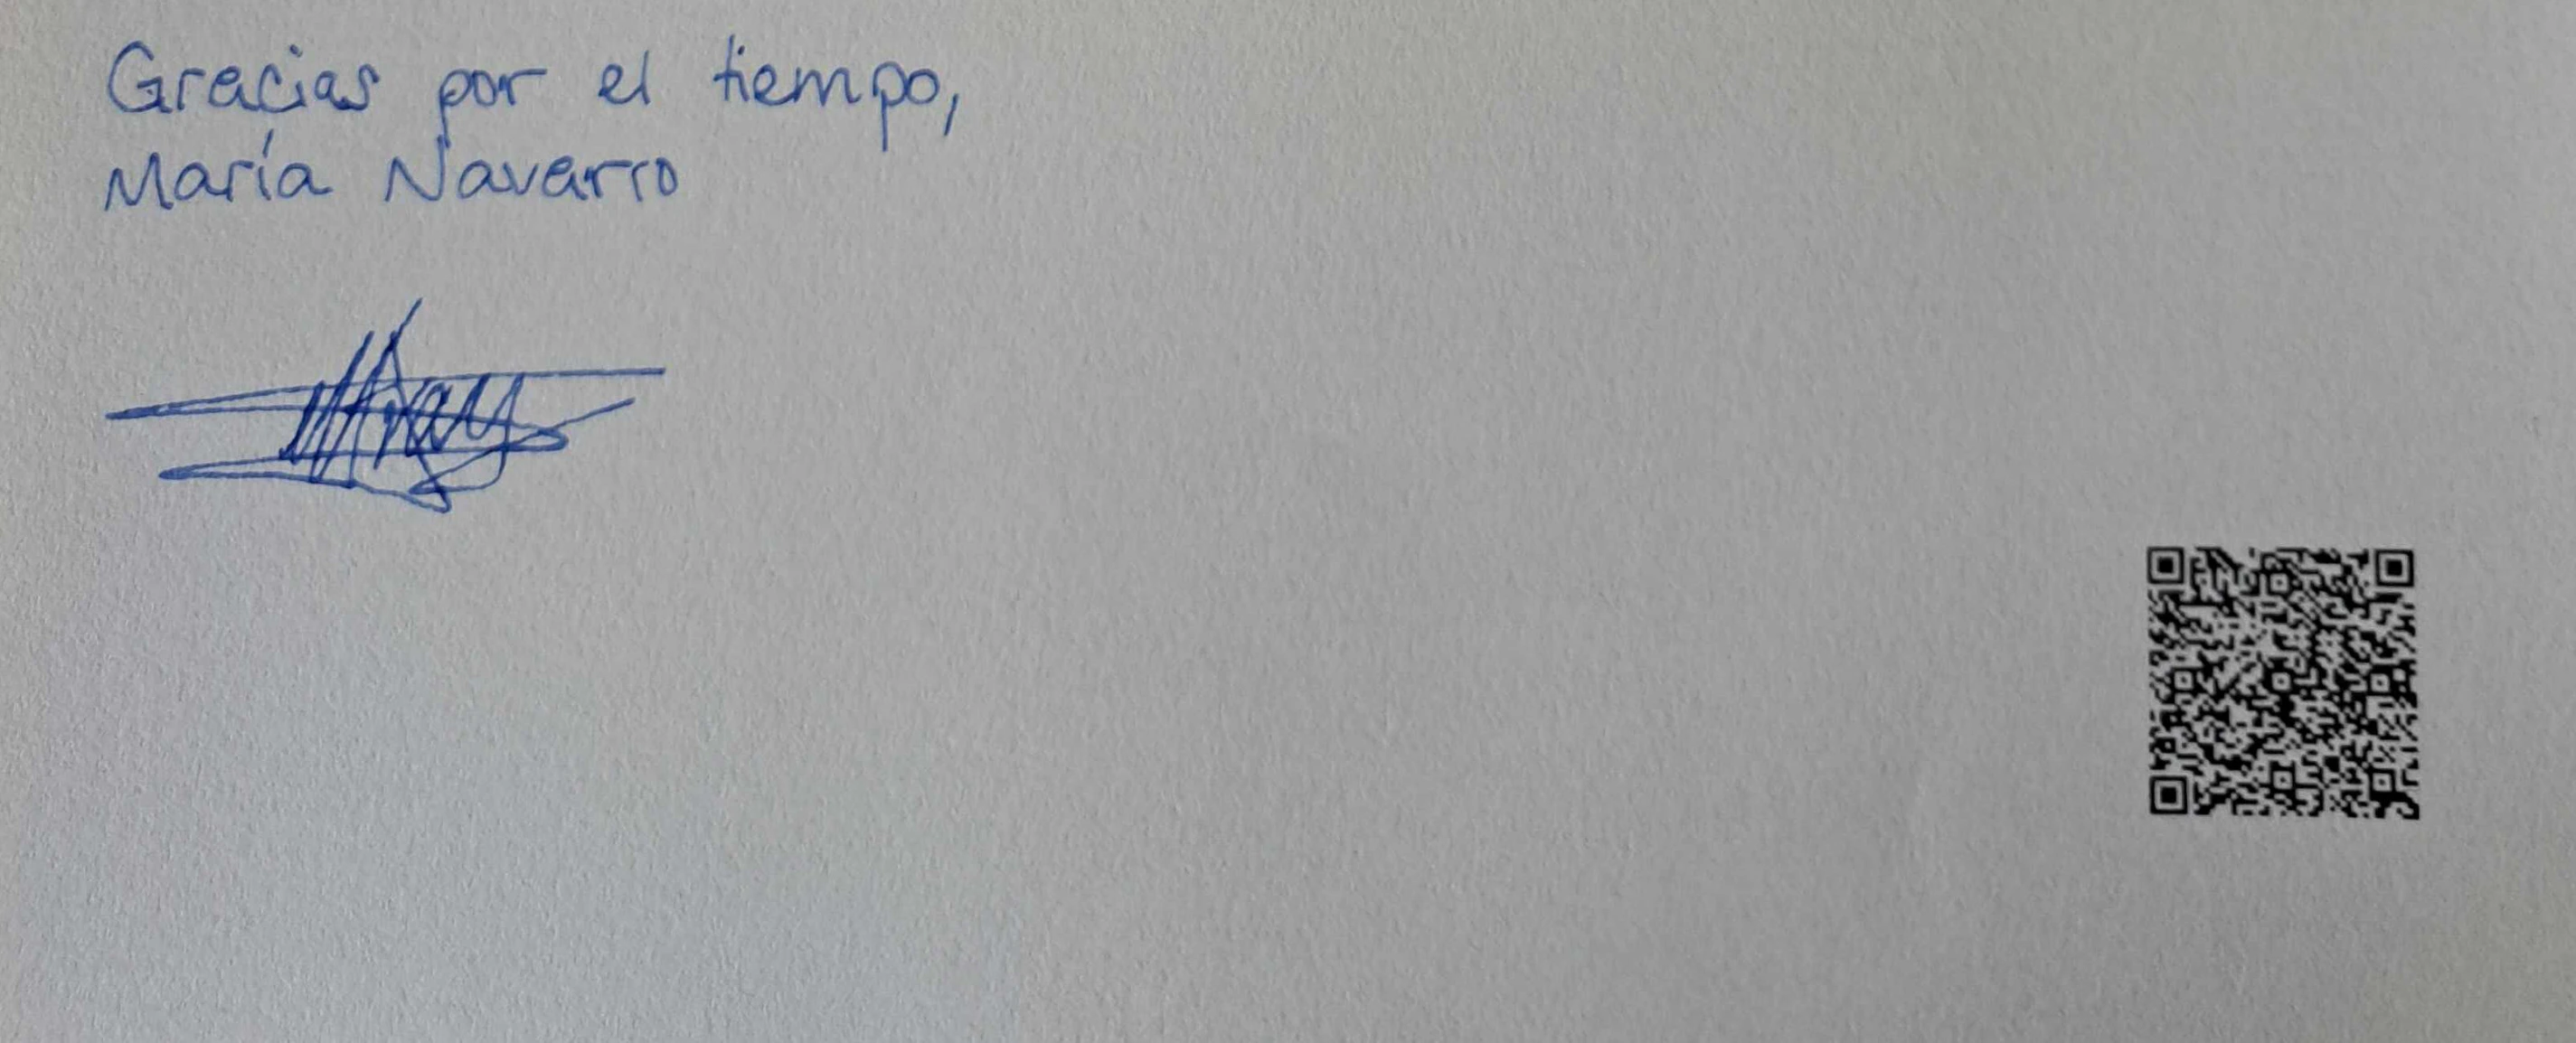 Gracias por el tiempo,
María Navarro